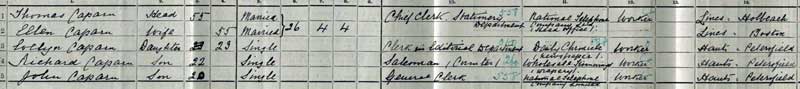 1 Thomas Caparn Head 55 Married Chief Clerk Stationery Department National Telephone Company Ltd Head Office Worker Lincs - Holbeach
2 Ellen Caparn Wife 55 Married 26 4 4 Lincs - Boston
3 Daughter 23 Single Clerk in Editorial Department Daily Chronicle (newspaper) Worker Hants - Petersfield
4 Richard Caparn Son 22 Single Salesman (Counter) Wholesale Trimmings (Drapery) Worker Hants - Petersfield
5 John Caparn Son 20 Single General Clerk 558 National Telephone Company Limited Worker Hants - Petersfield